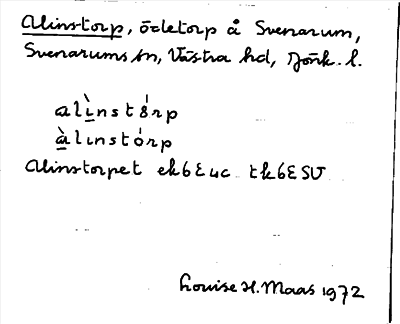 Alinstorp, ödetorp å Svenarum,
Svenarums sn, Västra hd, Jönk. l.
alìnstórp
àlinstórp
Alinstorpet ek6E4c
Louise H. Maas 1972